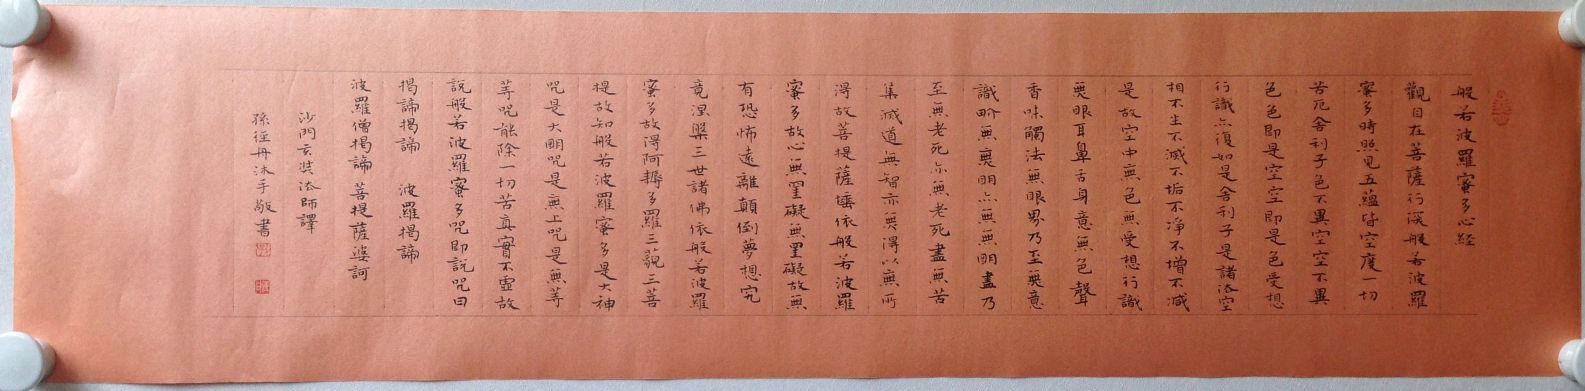 般若波羅蜜多心経
觀自在菩薩行深般若波羅
蜜多時照見五蘊皆空度一切
苦厄舍利子色不異空空不異
色色即是空空即是色受想
行識亦復如是舍利子是諸法空
相不生不滅不垢不净不增不减
是故空中無色無受想行識
無眼耳鼻舌身意無色聲
香味觸法無眼界乃至無意
識界無無明亦無無明盡乃
至無老死亦無老死盡無苦
集滅道無智亦無得以無所
得故菩提薩埵依般若波羅
蜜多故心無罣礙無罣礙故無
有恐怖遠離顛倒夢想究
竟涅槃三世諸佛依般若波羅
蜜多故得阿耨多羅三藐三菩
提故知般若波羅蜜多是大神
咒是大明咒是無上咒是無等
等咒能除一切苦真實不虛故
說般若波羅蜜多咒即說咒曰
揭諦揭諦 波羅揭諦
波羅僧揭諦 菩提薩婆訶
沙門玄奘法師譯
孫徑丹沐手敬書